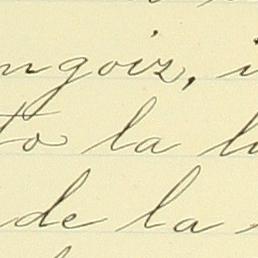 ngoiz, i
to la l
de la